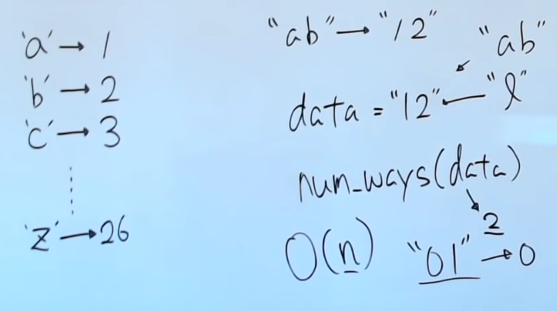 'a' → 1
'b' → 2
'c' → 3
'z' → 26
"ab" → "12"
"ab"
data = "12" ← "l"
num_ways(data)
2
O(n) "01" → 0